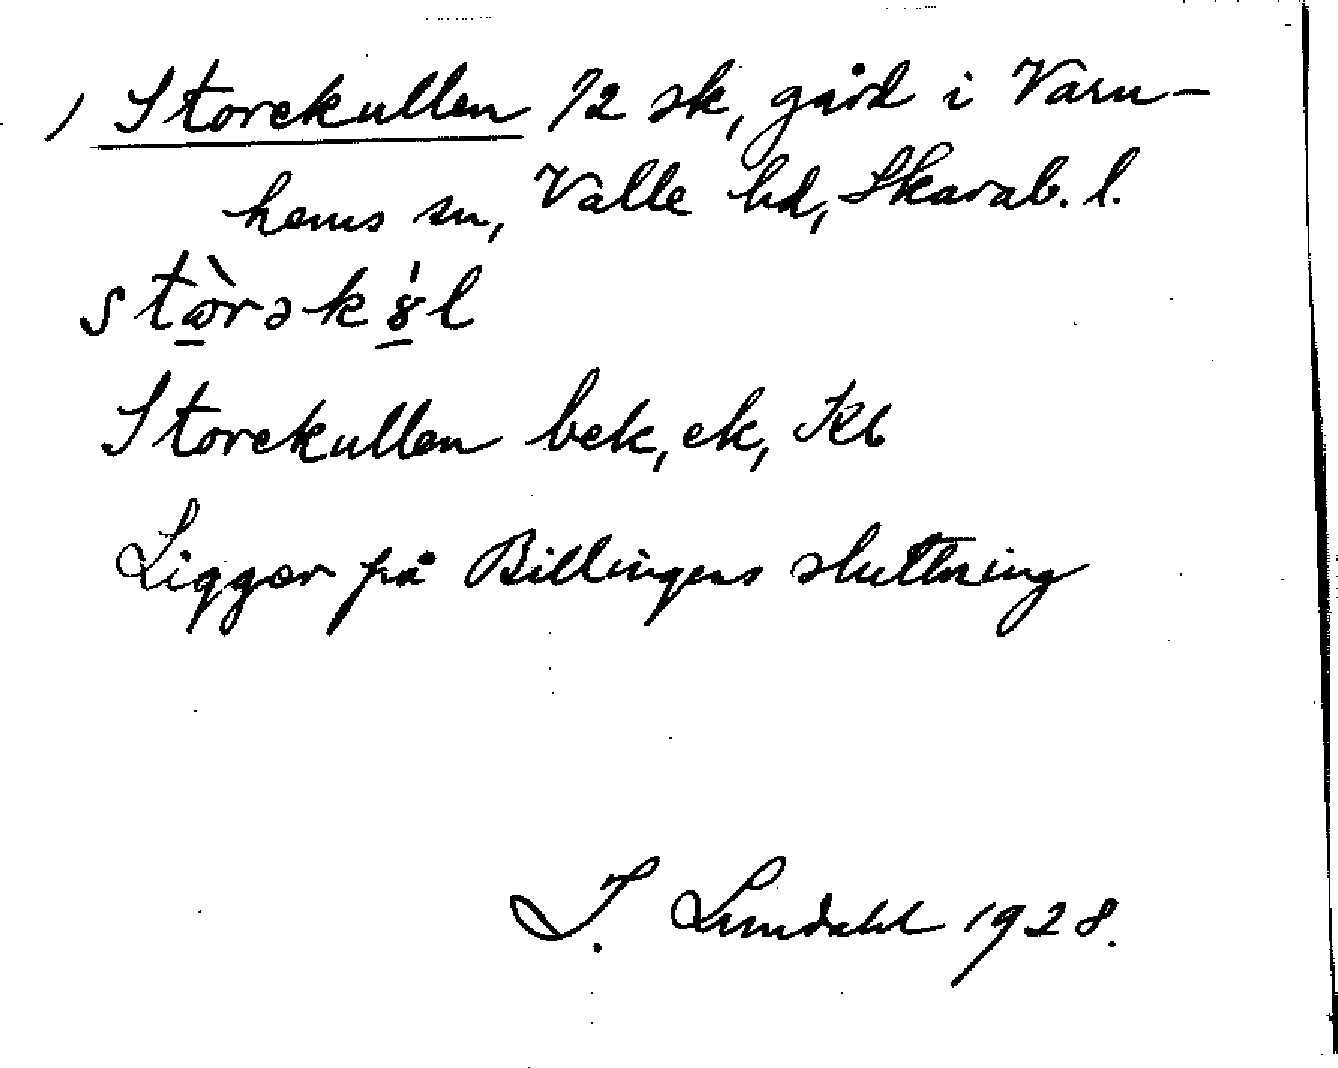 / Storekullen /2 sk, gård i Varn-
hems sn, Valle hd, Skarab. l.
stɷ̀rəkȣ́l
Storekullen bek, ek, Kb
Ligger på Billingens sluttning
I. Lundahl 1928.